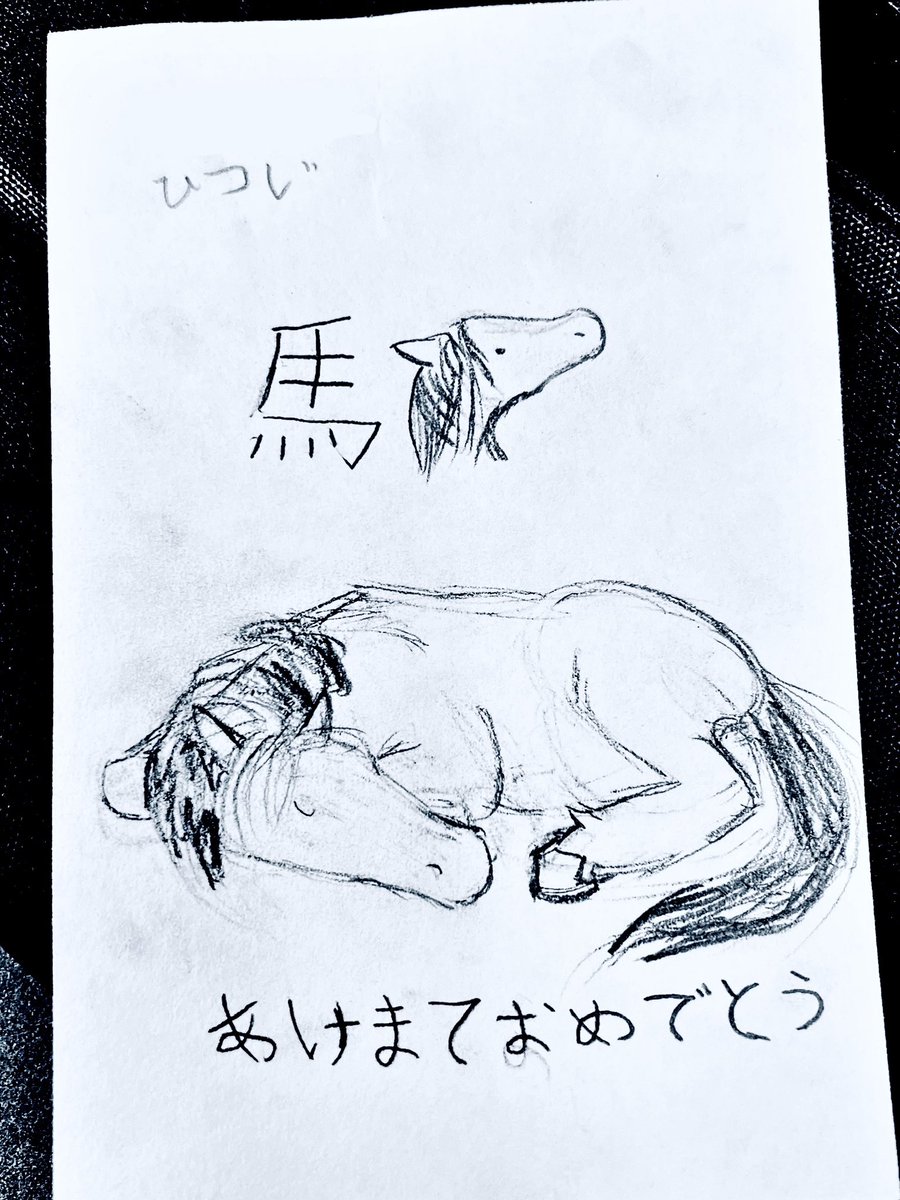 ひつじ
馬
あけまておめでとう